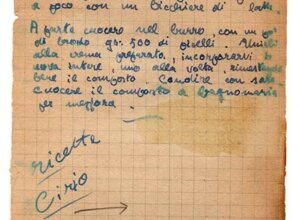 a poco con un bicchiere di latte.
A parte cuocere nel burro, con un po'
di brodo gr. 500 di piselli. Unirli
alla crema preparata, incorporarvi le
uova intere, una alla volta, rimestando
bene il composto. Condire con sale
cuocere il composto a bagnomaria
per mezzora.
Ricette
Cirio